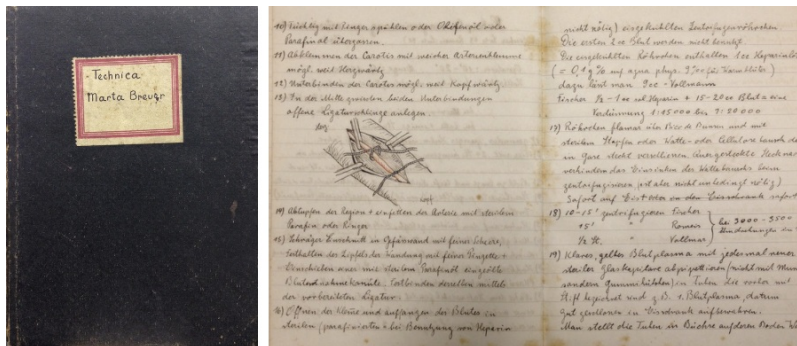 Technica
Marta Breuer
10) Tüchtig mit Ringer spühlen oder Olivenöl oder
Parafinöl übergiessen.
11) Abklemmen der Carotis mit weicher Arterienklemme
mögl. weit Herzwärts
12) Unterbinden der Carotis mögl. weit Kopfwärts
13) In der Mitte zwischen beiden Unterbindungen
offene Ligaturschlinge anlegen.
14) Abtupfen der Region + einfetten der Arterie mit sterilem
Parafin oder Ringer
15) Schräger Einschnitt in Gefässwand mit feiner Schere,
Festhalten des Zipfels der Wandung mit feiner Pinzette +
Einschieben einer mit sterilem Parafinöl eingeölte
Blutentnahmekanüle. Festbinden derselben mittels
der vorbereiteten Ligatur.
16) Öffnen der Klemme und auffangen des Blutes in
sterilen (parafinierten + bei Benutzung von Heparin
nicht nötig) eisgekühlten Zentrifugenröhrchen
Die ersten 2cc Blut werden nicht benützt
Die eisgekühlten Röhrchen enthalten 1cc Heparinlös
(= 0,1 g % auf aqua phys. 9‰ für Warmblüter)
dazu lässt man 9cc - Vollmar
Fischer ½ - 1 cc sol. Heparin + 15-20cc Blut = eine
Verdünnung 1:15000 bis 1:20000
17) Röhrchen flamar über Bico de Bunsen und mit
sterilem Stopfen oder Watte- oder Cellulose bausch
in Gaze
verhindern das Einsinken des Wattebauschs beim
zentrifugieren, ist aber nicht unbedingt nötig)
Sofort auf Eis oder in den Eisschrank
18) 10-15' zentrifugieren Fischer
15' " 
½ St. " Vollmar
bei 3000-3500
Umdrehungen
19) Klares, gelbes Blutplasma mit jedesmal neuer
steriler Glaspipette abpipettieren (nicht mit Mund
sondern Gummihütchen) in Tuben die vorher mit
bezeichnet und z.B. 1. Blutplasma, datum
gut geschlossen in Eisschrank aufbewahren.
Man stellt die Tuben in Büchse auf deren Boden